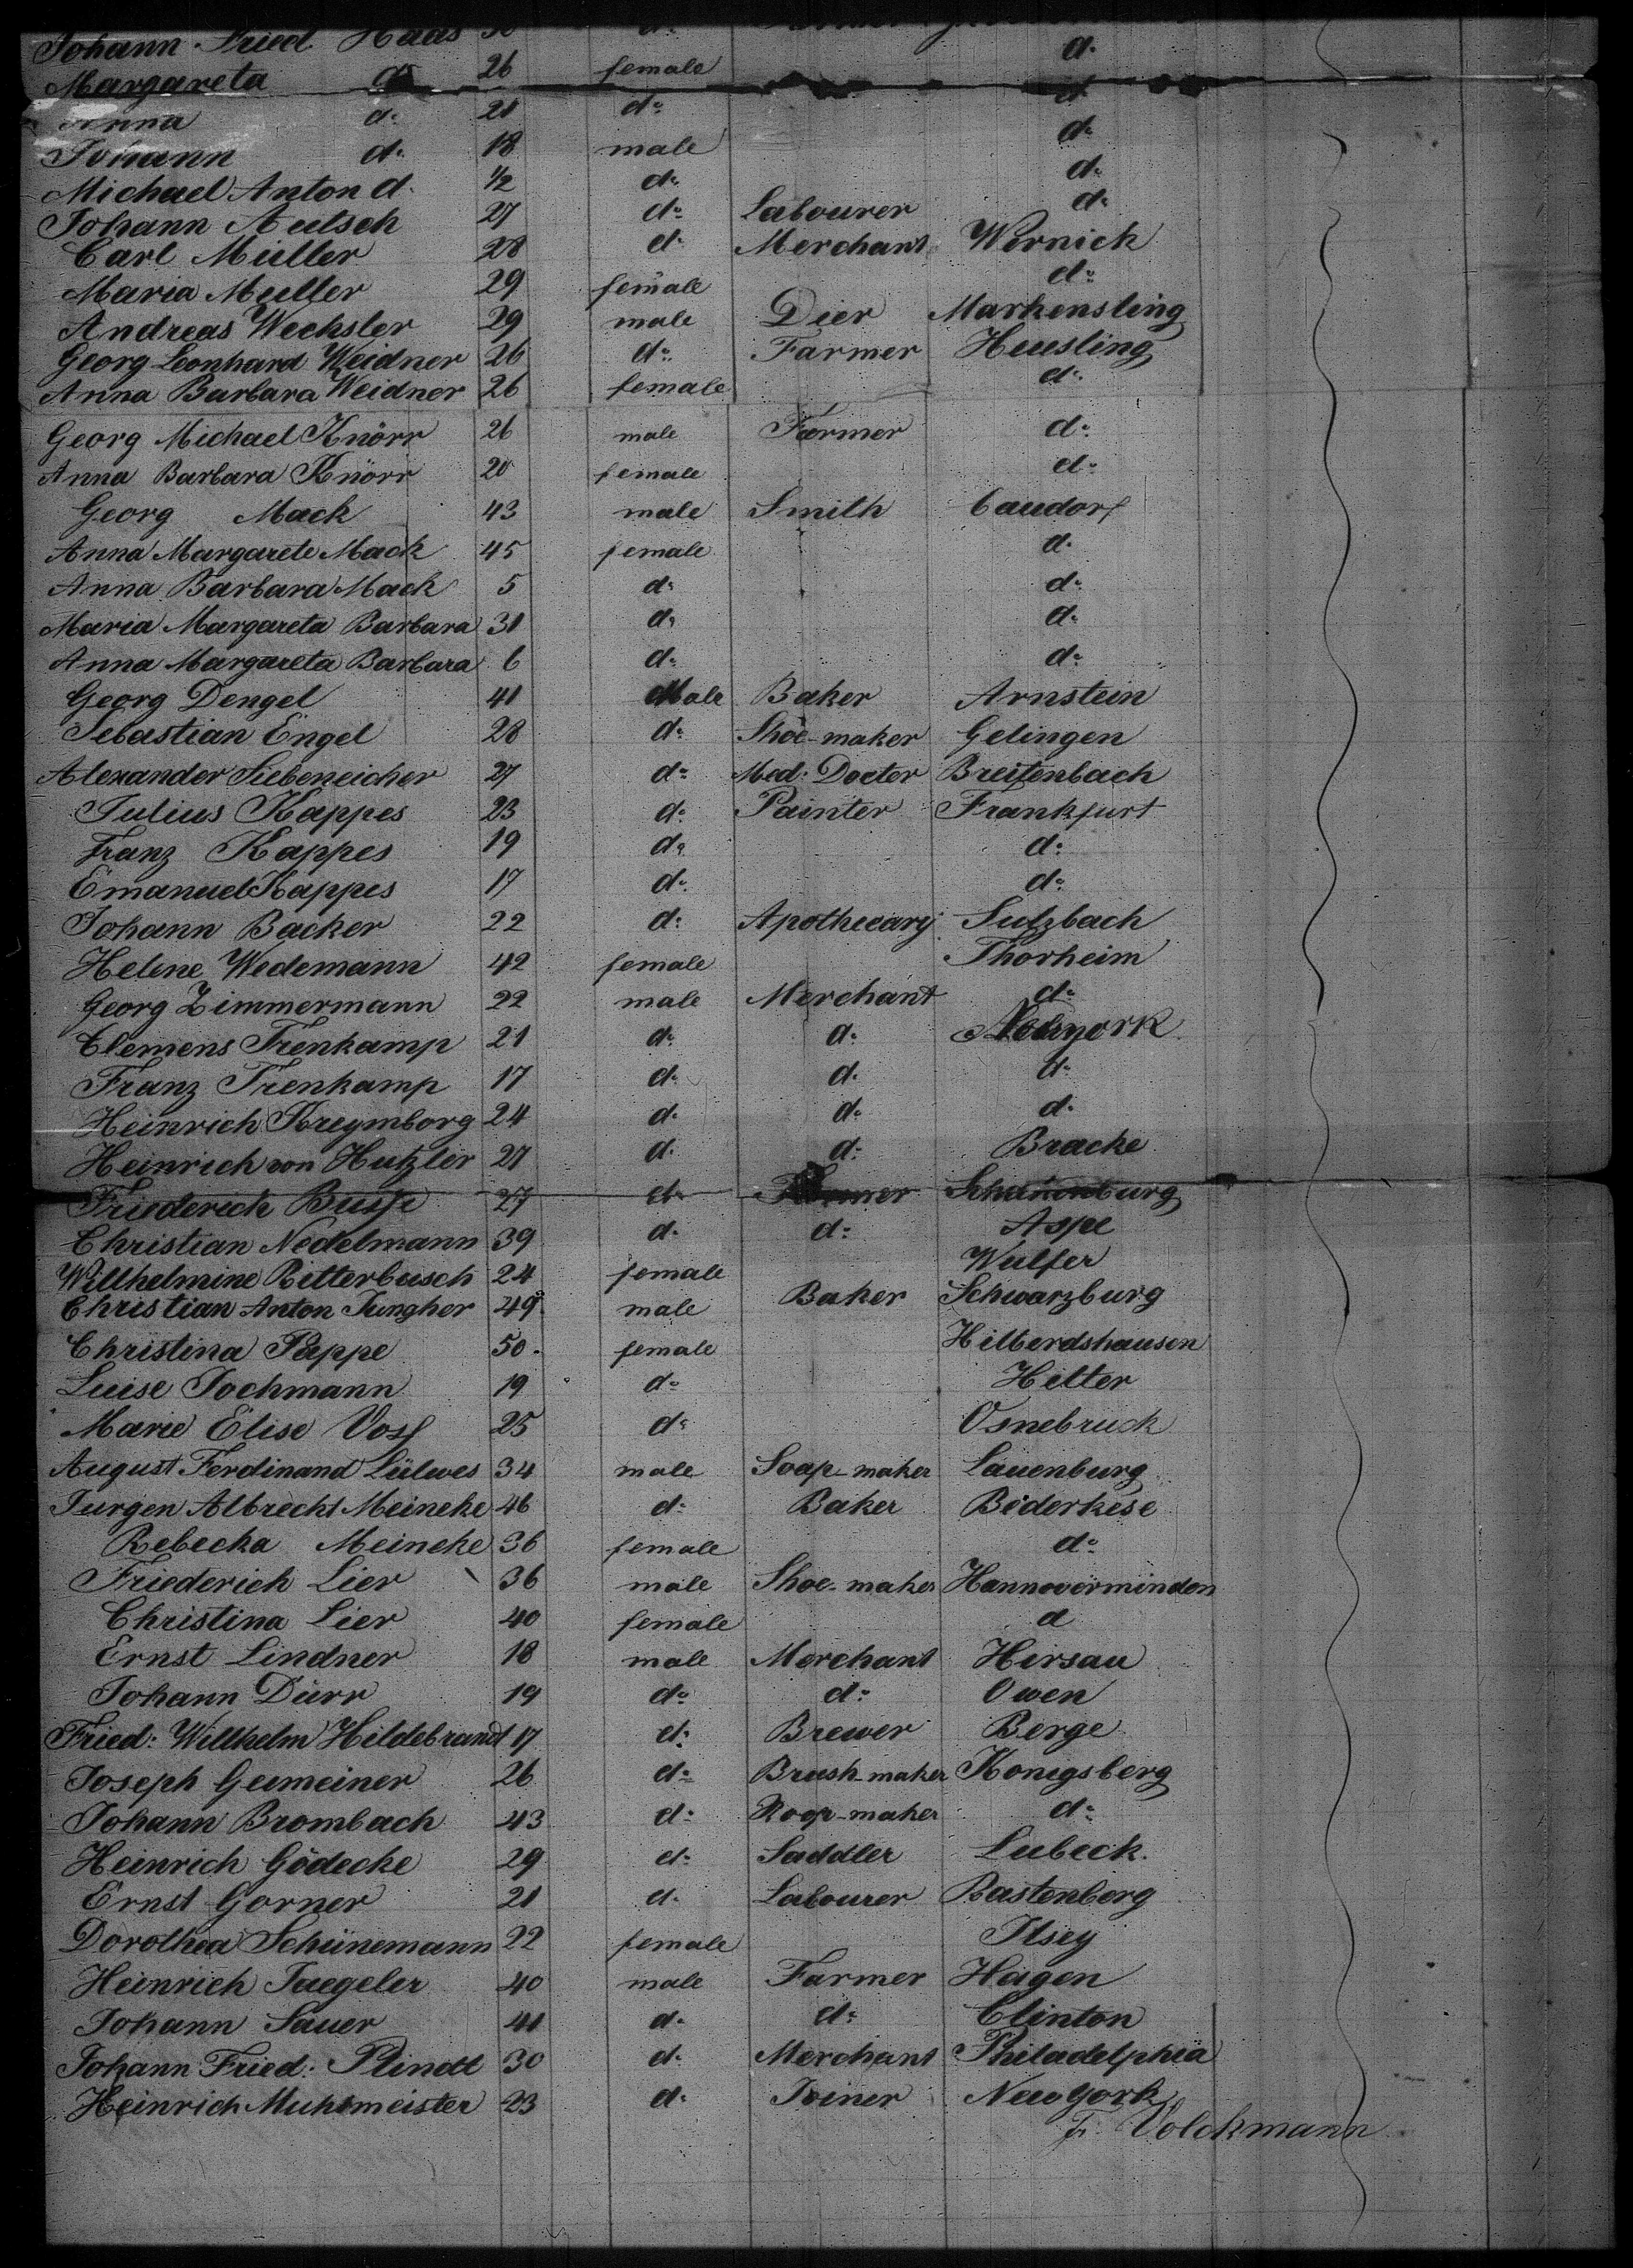 Johann Fried Haas d.
Margareta do 26 female d.
Anna d. 21 do d.
Johann d. 18 male d.
Michael Anton d. 1/2 do d.
Johann Aulsch 27 do Labourer d.
Carl Müller 28 d. Merchant Wernick
Maria Muller 29 female do
Andreas Wechsler 29 male Dier Markensling
Georg Leonhard Weidner 26 do Farmer Heusling
Anna Barbara Weidner 26 female d.
Georg Michael Knörr 26 male Farmer do
Anna Barbara Knörr 20 female do
Georg Mack 43 male Smith Caudorf
Anna Margarete Mack 45 female d.
Anna Barbara Mack 5 do do
Maria Margareta Barbara 31 do do
Anna Margareta Barbara 6 do do
Georg Dengel 41 Male Baker Arnstein
Sebastian Engel 28 do Shoe-maker Gelingen
Alexander Siebeneicher 27 do Med: Docter Breitenbach
Julius Kappes 23 do Painter Frankfurt
Franz Kappes 19 do do
Emanuel Kappes 17 do do
Johann Backer 22 do Apothecary Sulzbach
Helene Wedemann 42 female Thorheim
Georg Zimmermann 22 male Merchant do
Clemens Trenkamp 21 do do Newyork
Franz Trenkamp 17 do d. d.
Heinrich Kreymborg 24 d. do d.
Heinrich von Hutzler 27 d. do Bracke
Friederich Busse 27 do Farmer Schaumburg
Christian Nedelmann 39 d. do Aspe
Willhelmine Ritterbusch 24 female Wulfer
Christian Anton Jungher 49 male Baker Schwarzburg
Christina Pappe 50. female Hilberdshausen
Luise Jochmann 19 do Hilter
Marie Elise Voss 25 do Osnebruck
August Ferdinand Lülwes 34 male Soap-maker Lauenburg
Jurgen Albrecht Meineke 46 do Baker Bederkese
Rebecka Meineke 36 female do
Friederich Lier 36 male Shoe-maker Hannoverminden
Christina Lier 40 female d
Ernst Lindner 18 male Merchant Hirsau
Johann Dürr 19 do do Owen
Fried: Willhelm Hildebrandt 17 do Brewer Berge
Joseph Gemeiner 26 do Brush-maker Konigsberg
Johann Brombach 43 do Roop-maker do
Heinrich Gödecke 29 do Saddler Lubeck.
Ernst Gorner 21 d. Labourer Rastenberg
Dorothea Schünemann 22 female Ilsey
Heinrich Jaegeler 40 male Farmer Hagen
Johann Sauer 41 d. do Clinton
Johann Fried: Plindt 30 d. Merchant Philadelphia
Heinrich Muhlmeister 23 d. Joiner New York
F. Volckmann